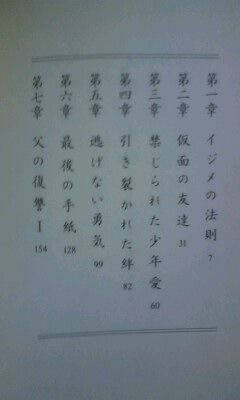 第一章 イジメの法則 7
第二章 仮面の友達 31
第三章 禁じられた少年愛 60
第四章 引き裂かれた絆 82
第五章 逃げない勇気 99
第六章 最後の手紙 128
第七章 父の復讐Ⅰ 154